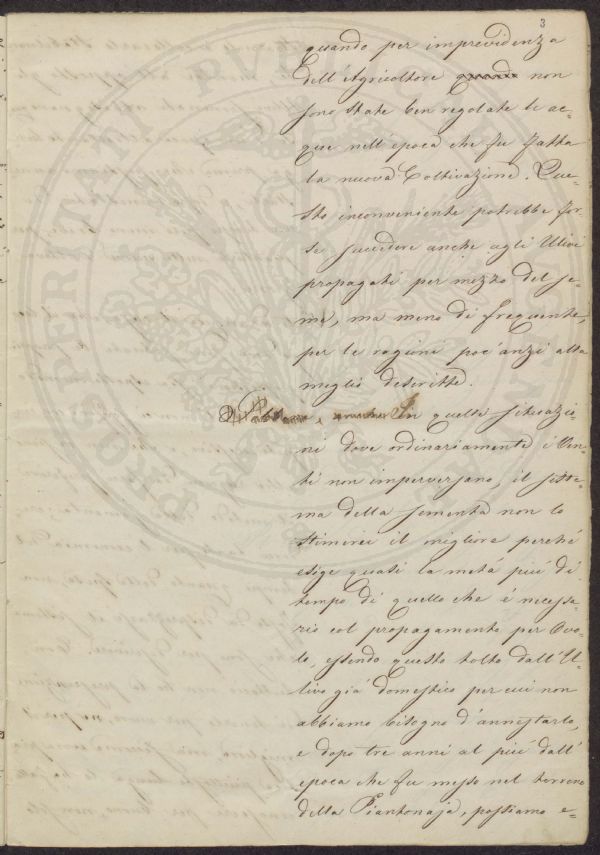 3
quando per imprevidenza
dell'Agricoltore quando non
sono state ben regolate le ac=
que nell'epoca che fu fatta
la nuova Coltivazione. Que=
sto inconveniente potrebbe for
se succedere anche agli Ulivi
propagati per mezzo del se=
me, ma meno di frequente,
per le ragioni poc'anzi alla
meglio descritte.
In quelle situazio=
ni dove ordinariamente i Ven=
ti non imperversano, il siste=
ma della sementa non lo
stimerei il migliore perché
esige quasi la metá piú di
tempo di quello che é necessa=
rio col propagamento per Ovo=
lo, essendo questo tolto dall'U=
livo giá domestico per cui non
abbiamo bisogno d'annestarlo,
e dopo tre anni al piú dall'
epoca che fu messo nel terreno
della Piantonaja, possiamo e=
PROSPERITATI PUBLICAE